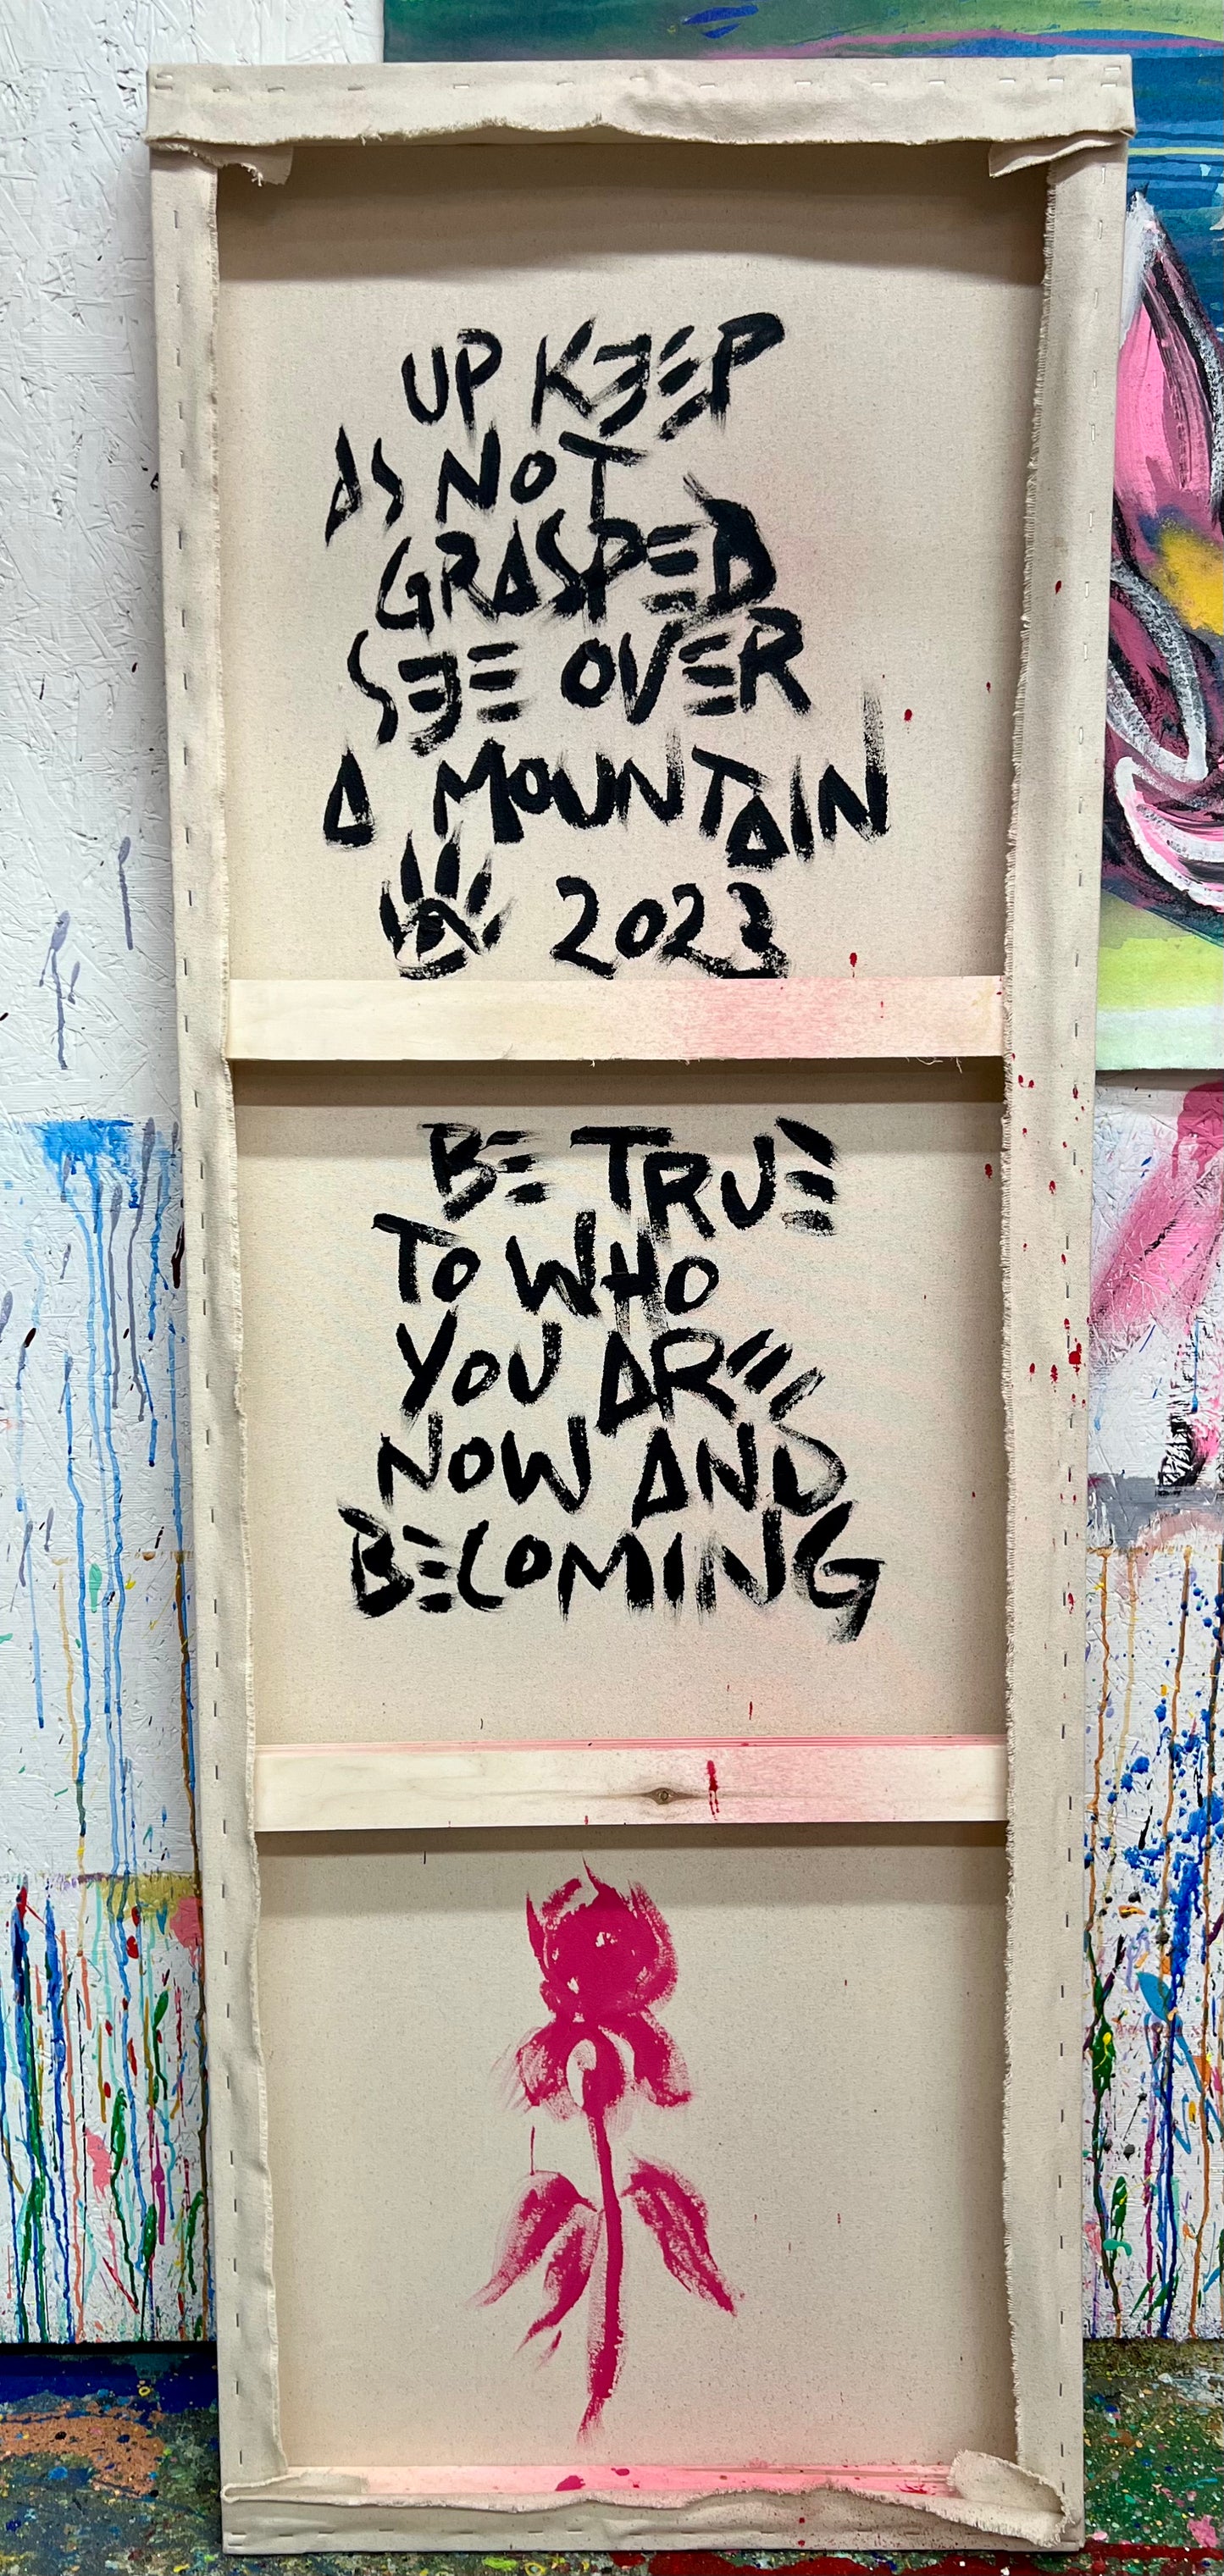 UP KEEP
AS NOT
GRASPED
SEE OVER
A MOUNTAIN
2023
BE TRUE
TO WHO
YOU ARE
NOW AND
BECOMING